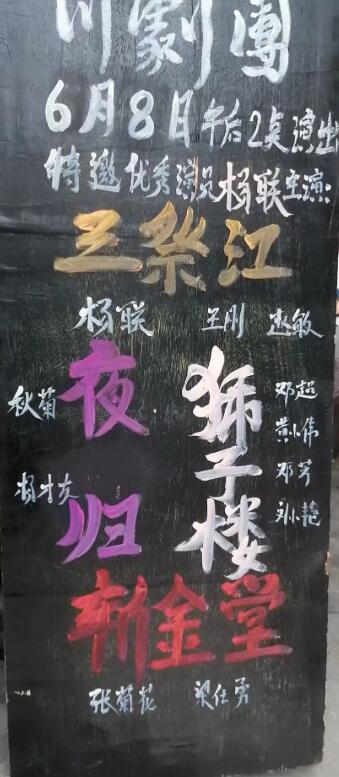 川劇團
6月8日午后2点演出
特邀优秀演员杨联主演:
三祭江
杨联 王刚 赵敏
夜归
秋菊
杨才友
狮子楼
邓超
黄小伟
邓芳
孙艳
斩金堂
张菊花 梁仕勇